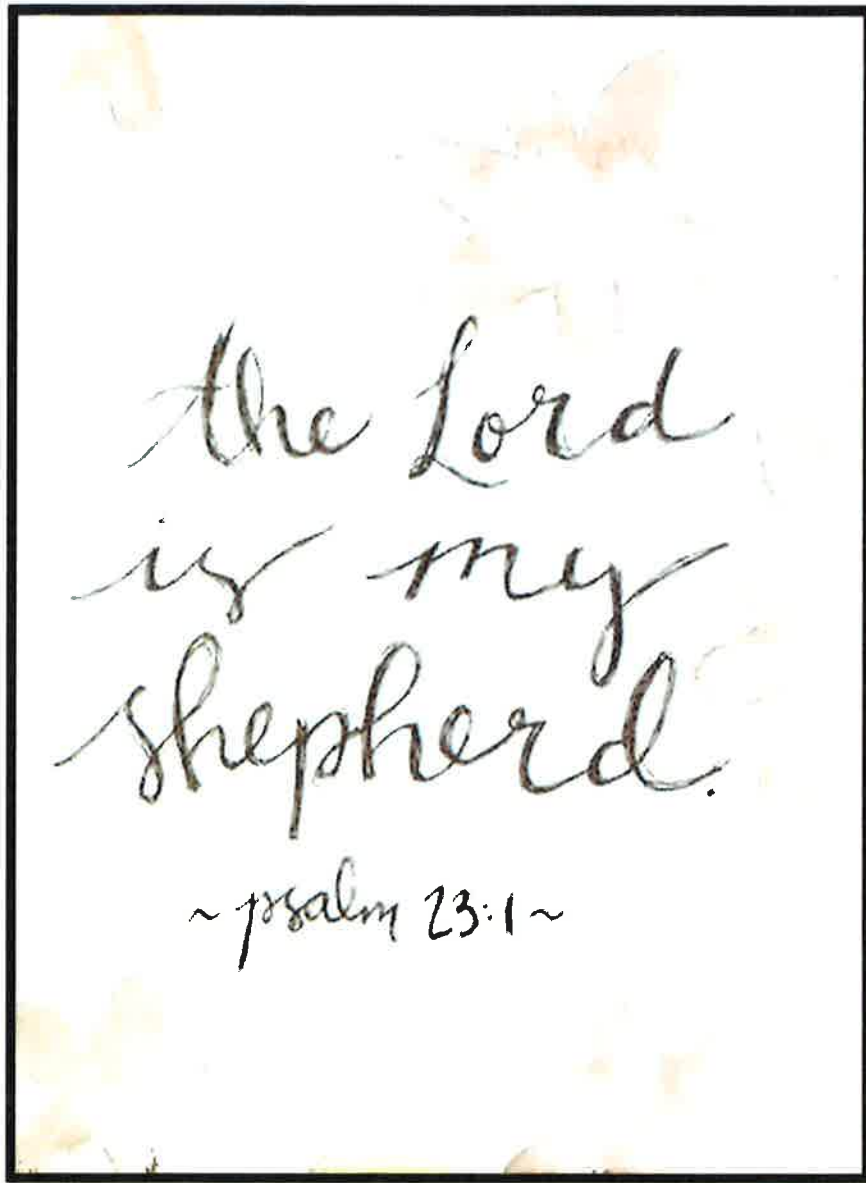 the Lord
is my
shepherd.
~psalm 23:1~